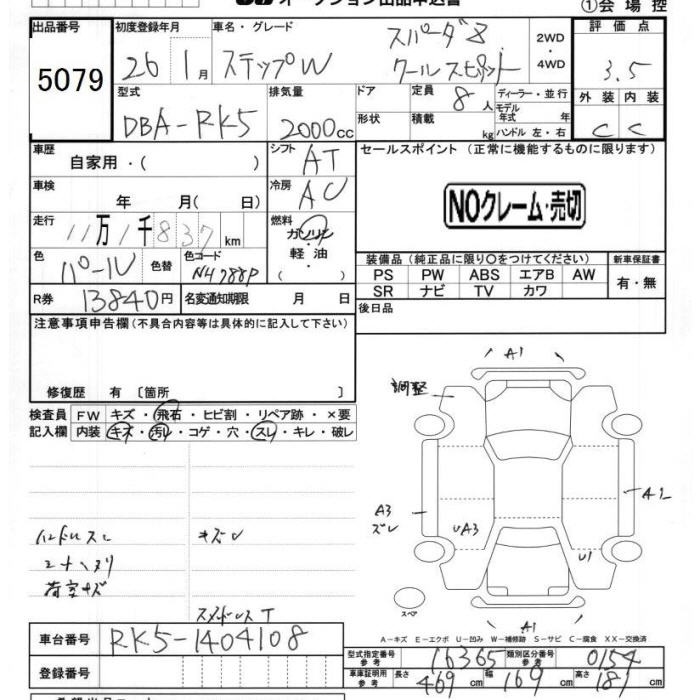 オークション出品申込書
①会場控
出品番号 初度登録年月 車名・グレード 評価点
5079
26 1月 ステップW スパーダZ クールスピリット 2WD・4WD 3.5
型式 排気量 ドア 定員 8人 ディーラー・並行 外装 内装
DBA-RK5 2000cc 形状 積載 kg モデル年式 年 ハンドル 左・右 C C
車歴 自家用・( ) シフト AT セールスポイント (正常に機能するものに限ります)
車検 年 月( 日) 冷房 AC
NOクレーム・売切
走行 11万1千837km 燃料 ガソリン・軽油・( )
色 パール 色替 色コード NH788P
装備品(純正品に限り○をつけてください) 新車保証書
PS PW ABS エアB AW 有・無
SR ナビ TV カワ
R券 13840円 名変通知期限 月 日 後日品
注意事項申告欄(不具合内容等は具体的に記入して下さい)
A1
調整
修復歴 有 〔箇所 〕
検査員記入欄 FW キズ・飛石・ヒビ割・リペア跡・×要
内装 キズ・汚レ・コゲ・穴・スレ・キレ・破レ
A1
A3
ズレ
UA3
U1
キズU
荷室キズ
スペア
A1
A-キズ E-エクボ U-凹み W-補修跡 S-サビ C-腐食 XX-交換済
車台番号 RK5-1404108
型式指定番号 参考 16365 類別区分番号 参考 0154
登録番号
車庫証明用 参考 長さ 469cm 幅 169cm 高さ 181cm